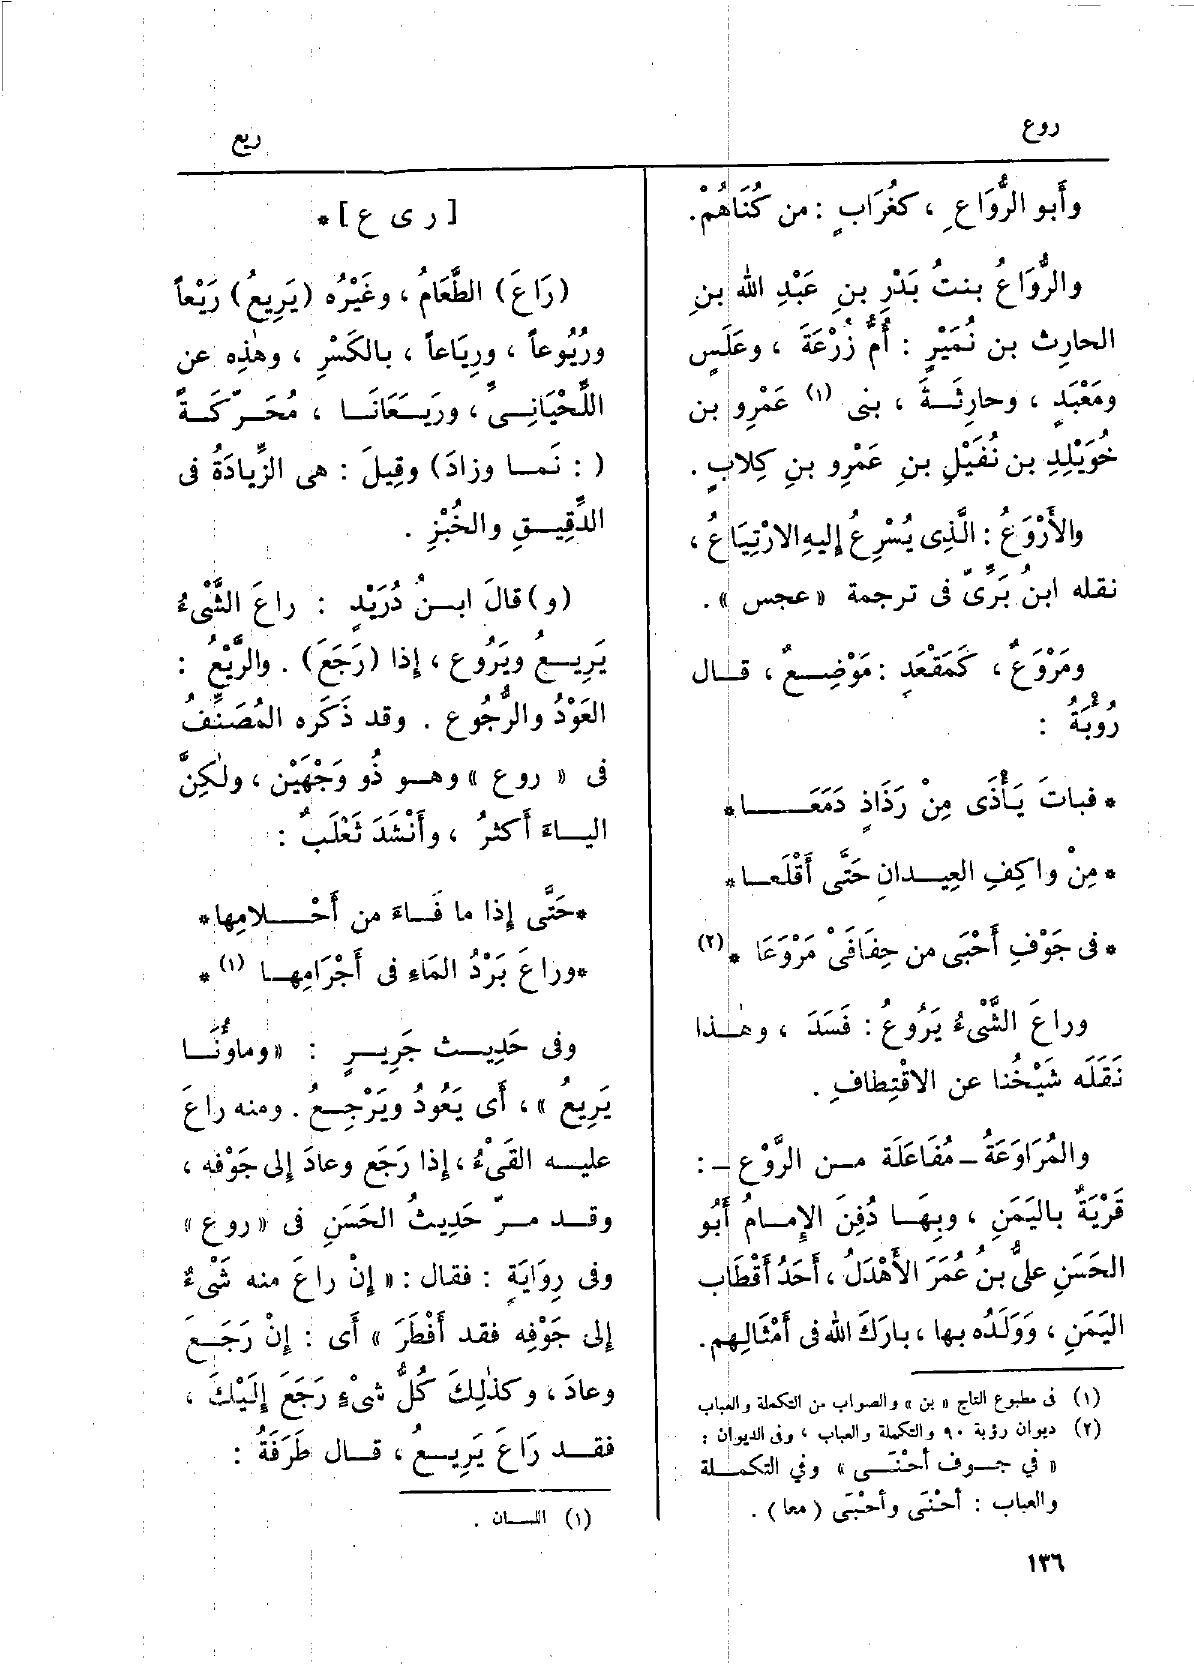 روع
ريع
وأَبو الرُّوَاعِ ، كغُرَابٍ : من كُنَاهُمْ .
والرُّوَاعُ بنتُ بَدْرِ بنِ عَبْدِ الله بنِ
الحارِث بن نُمَيْرٍ : أُمُّ زُرْعَةَ ، وعَلَسٍ
ومَعْبَدٍ ، وحارِثَـةَ ، بنى (١) عَمْرِو بن
خُوَيْلِدِ بن نُفَيْلِ بنِ عَمْرِو بنِ كِلابٍ .
والأَرْوَعُ : الَّذِى يُسْرِعُ إِليهِ الارْتِيَاعُ ،
نقله ابنُ بَرِّىّ فى ترجمة « عجس » .
ومَرْوَعٌ ، كَمَقْعَدٍ : مَوْضِـعٌ ، قـال
رُوبَةُ :
* فباتَ يَأْذَى مِنْ رَذَاذٍ دَمَعَـــا *
* مِنْ واكِفِ العِيـدانِ حَتَّى أَقْلَعـا *
* فى جَوْفِ أَحْبَى من حِفَافَىْ مَرْوَعَا * (٢)
وراعَ الشَّىْءُ يَرُوعُ : فَسَدَ ، وهٰـذا
نَقَلَه شَيْخُنا عن الاقْتِطافِ .
والمُرَاوَعَةُ ـ مُفَاعَلَة مـن الرَّوْعِ ـ :
قَرْيَةٌ باليَمَنِ ، وبِهَـا دُفِنَ الإِمـامُ أَبُو
الحَسَنِ علىُّ بنُ عُمَرَ الأَهْدَلُ ، أَحَدُ أَقْطَاب
اليَمَنِ ، وَوَلَدُه بها ، بارَكَ الله فى أَمْثَالِهِم .
(١) فى مطبوع التاج « بن » والصواب من التكملة والعباب
(٢) ديوان رؤبة ٩٠ والتكملة والعباب ، وفى الديوان :
« في جـوف أحْنَـى » وفي التكمـلة
والعباب : أحْنَى وأحْبَى ( معا ) .
١٣٦
[ ر ى ع ] *
(رَاعَ) الطَّعَامُ ، وغَيْرُه (يَرِيعُ) رَيْعاً
ورُيُوعاً ، ورِيَاعاً ، بالكَسْرِ ، وهٰذِه عن
اللِّحْيَانِـىِّ ، ورَيَـعَانَـا ، مُحَـرَّكَـةً
( : نَمـا وزادَ) وقِيلَ : هى الزِّيادَةُ فى
الدَّقِيـقِ والخُبْزِ .
(و) قالَ ابـنُ دُرَيْدٍ : راعَ الشَّىْءُ
يَرِيـعُ ويَرُوع ، إِذا (رَجَعَ) . والرَّيْعُ :
العَوْدُ والرُّجُوع . وقد ذَكَره المُصَنِّفُ
فى « روع » وهـو ذُو وَجْهَيْن ، ولٰكِنَّ
اليـاءَ أَكثرُ ، وأَنْشَدَ ثَعْلَبٌ :
*حَتَّى إِذا ما فَـاءَ من أَحْـــلامِها*
*وراعَ بَرْدُ المَاءِ فى أَجْرَامِهـا (١) *
وفى حَدِيـث جَرِيـرٍ : « وماؤُنَـا
يَرِيعُ » ، أَى يَعُودُ ويَرْجِـعُ . ومنه راعَ
عليـه القَىْءُ ، إِذا رَجَع وعادَ إِلى جَوْفِه ،
وقـد مـرّ حَدِيثُ الحَسَنِ فى « روع »
وفى رِوَايَةٍ : فقال : « إِنْ راعَ منه شَىْءٌ
إِلى جَوْفِه فقد أَفْطَرَ » أَى : إِنْ رَجَـعَ
وعادَ ، وكذٰلِكَ كُلُّ شىْءٍ رَجَعَ إِلَيْكَ ،
فقـد رَاعَ يَرِيـعُ ، قـال طَرَفَةُ :
(١) اللسـان .